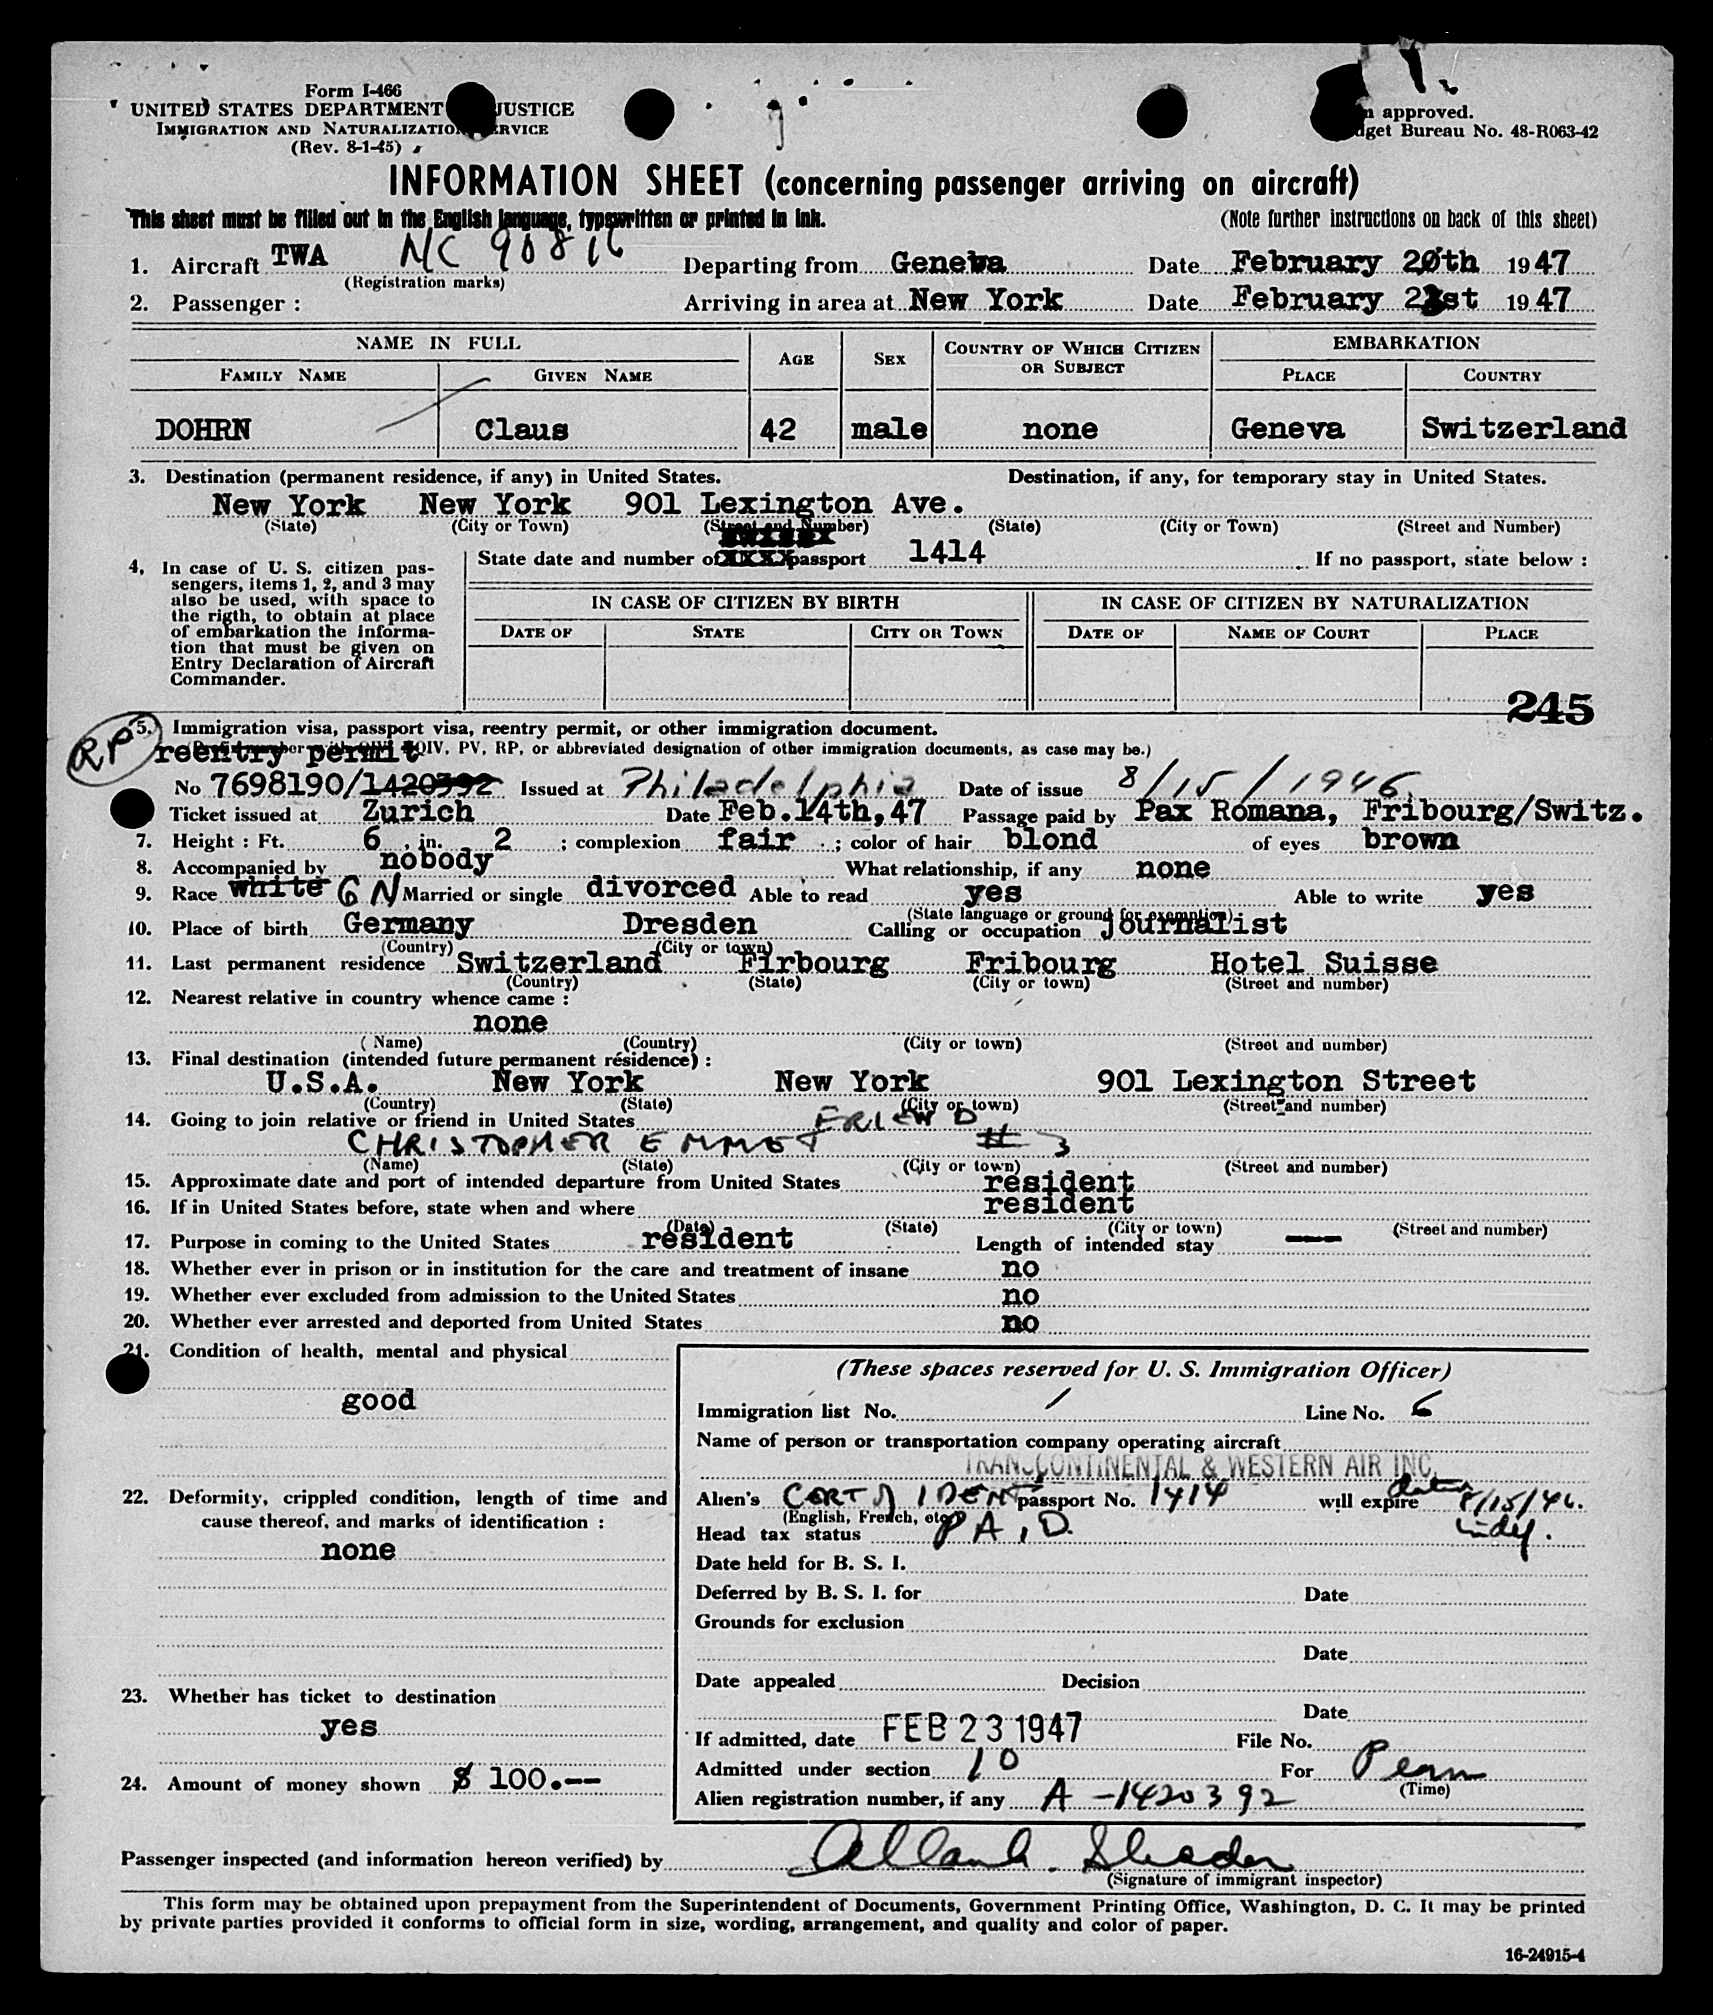 Form I-466
UNITED STATES DEPARTMENT JUSTICE
IMMIGRATION AND NATURALIZATION SERVICE
(Rev. 8-1-45)
approved.
Budget Bureau No. 48-R063-42
INFORMATION SHEET (concerning passenger arriving on aircraft)
This sheet must be filled out in the English language, typewritten or printed in ink. (Note further instructions on back of this sheet)
1. Aircraft TWA NC 90816 Departing from Geneva Date February 20th 1947
(Registration marks)
2. Passenger : Arriving in area at New York Date February 21st 1947
NAME IN FULL AGE SEX COUNTRY OF WHICH CITIZEN OR SUBJECT EMBARKATION
FAMILY NAME GIVEN NAME PLACE COUNTRY
DOHRN Claus 42 male none Geneva Switzerland
3. Destination (permanent residence, if any) in United States. Destination, if any, for temporary stay in United States.
New York New York 901 Lexington Ave.
(State) (City or Town) (Street and Number) (State) (City or Town) (Street and Number)
4, In case of U. S. citizen passengers, items 1, 2, and 3 may
also be used, with space to
the rigth, to obtain at place
of embarkation the information that must be given on
Entry Declaration of Aircraft
Commander.
State date and number of XXXX passport 1414 If no passport, state below :
IN CASE OF CITIZEN BY BIRTH IN CASE OF CITIZEN BY NATURALIZATION
DATE OF STATE CITY OR TOWN DATE OF NAME OF COURT PLACE
245
RP
5. Immigration visa, passport visa, reentry permit, or other immigration document.
reentry permit QIV, PV, RP, or abbreviated designation of other immigration documents, as case may be.)
No 7698190/1420392 Issued at Philadelphia Date of issue 8/15/1946.
Ticket issued at Zurich Date Feb.14th,47 Passage paid by Pax Romana, Fribourg/Switz.
7. Height : Ft. 6 , in. 2 ; complexion fair ; color of hair blond of eyes brown
8. Accompanied by nobody What relationship, if any none
9. Race white GN Married or single divorced Able to read yes Able to write yes
(State language or ground for exemption)
10. Place of birth Germany Dresden Calling or occupation journalist
(Country) (City or town)
11. Last permanent residence Switzerland Firbourg Fribourg Hotel Suisse
(Country) (State) (City or town) (Street and number)
12. Nearest relative in country whence came :
none
( Name) (Country) (City or town) (Street and number)
13. Final destination (intended future permanent résidence) :
U.S.A. New York New York 901 Lexington Street
(Country) (State) (City or town) (Street and number)
14. Going to join relative or friend in United States FRIEND
CHRISTOPHER EMMET # 3
(Name) (State) (City or town) (Street and number)
15. Approximate date and port of intended departure from United States resident
16. If in United States before, state when and where resident
(Date) (State) (City or town) (Street and number)
17. Purpose in coming to the United States resident Length of intended stay ---
18. Whether ever in prison or in institution for the care and treatment of insane no
19. Whether ever excluded from admission to the United States no
20. Whether ever arrested and deported from United States no
21. Condition of health, mental and physical
good
22. Deformity, crippled condition, length of time and
cause thereof, and marks of identification :
none
23. Whether has ticket to destination
yes
24. Amount of money shown $ 100.--
(These spaces reserved for U. S. Immigration Officer)
Immigration list No. 1 Line No. 6
Name of person or transportation company operating aircraft
TRANSCONTINENTAL & WESTERN AIR INC.
Alien's CERT of IDENT passport No. 1414 will expire dated 8/15/46.
(English, French, etc.) indef.
Head tax status PAID.
Date held for B. S. I.
Deferred by B. S. I. for Date
Grounds for exclusion
Date
Date appealed Decision
Date
If admitted, date FEB 23 1947 File No.
Admitted under section 10 For Perm
(Time)
Alien registration number, if any A-1420392
Passenger inspected (and information hereon verified) by
(Signature of immigrant inspector)
This form may be obtained upon prepayment from the Superintendent of Documents, Government Printing Office, Washington, D. C. It may be printed
by private parties provided it conforms to official form in size, wording, arrangement, and quality and color of paper.
16-24915-4